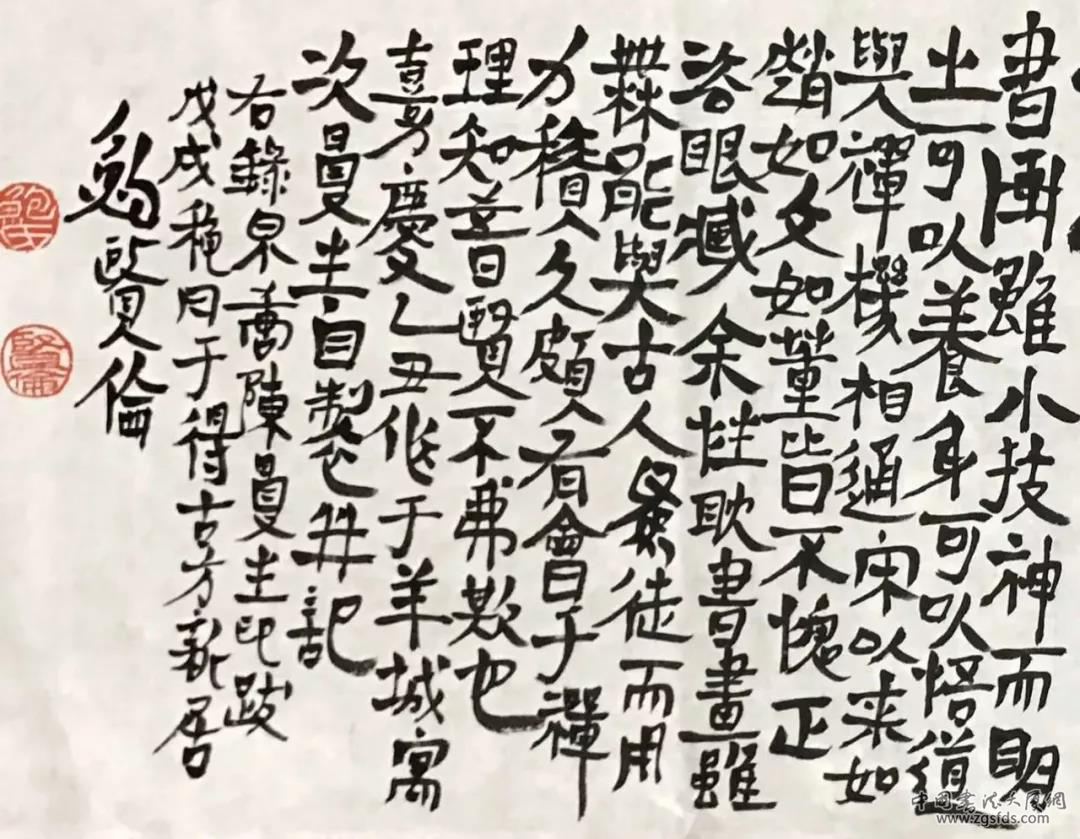 書画雖小技神而明
之可以養身可以悟道
與禪機相通宋以来如
趙如文如董皆不愧正
眼藏余性耽書畫雖
無能與古人徒而用
力稽久頗有會于禪
理知音賢不弗欺也
嘉慶乙丑作于羊城寓
次曼生自製并記
右錄泉喬陳曼生印跋
戊戌穐月于得古方新居
鮑賢倫
中国書法大展網
www.zgsfds.com